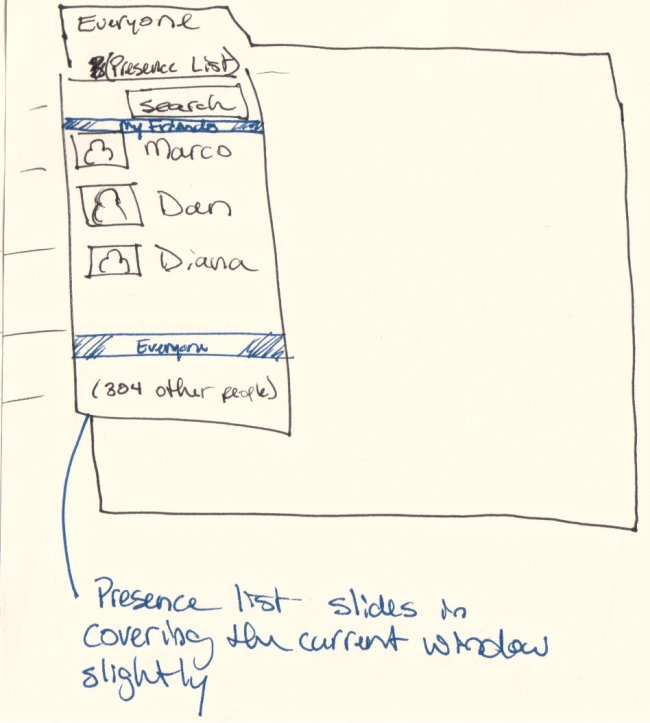 Everyone
(Presence List)
search
My Friends
Marco
Dan
Diana
Everyone
(304 other people)
Presence list slides in
covering the current window
slightly